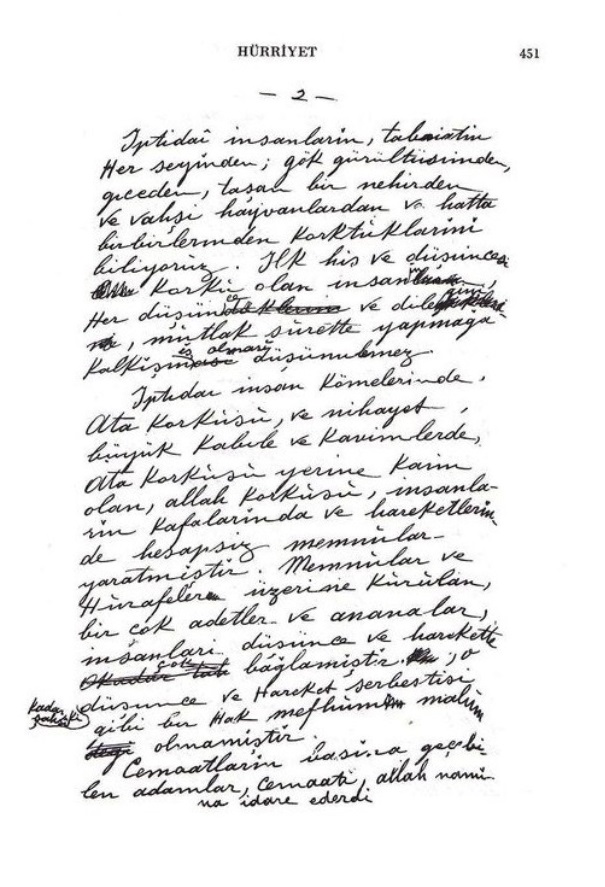 HÜRRİYET 451
— 2 —
İptidaî insanların, tabiatın
Her şeyinden; gök gürültüsünden,
geceden, taşan bir nehirden
ve vahşi hayvanlardan ve hatta
birbirlerinden korktüklarını
biliyoruz. İlk his ve düşüncesi
korku olan insanın,
Her düşünce ve dileğini,
mutlak sûrette yapmağa
kalkışmış olması düşünülemez.
İptidaî insan kömelerinde,
Ata korküsü, ve nihayet,
büyük kabile ve kavimlerde,
Ata korküsü yerine kaim
olan, allah korküsü, insanla-
rın kafalarında ve hareketlerin-
de hesapsız memnûlar
yaratmıştır. Memnûlar ve
Hürafeler üzerine kürülan,
bir çok adetler ve ananalar,
insanları düşünce ve harekette
çok bağlamıştır. o
kadar ki
düşünce ve Hareket serbestisi
gibi bir Hak mefhûm malûm
olmamıştır.
Cemaatların başına geçebi-
len adamlar, cemaatı, allah namı-
na idare ederdi